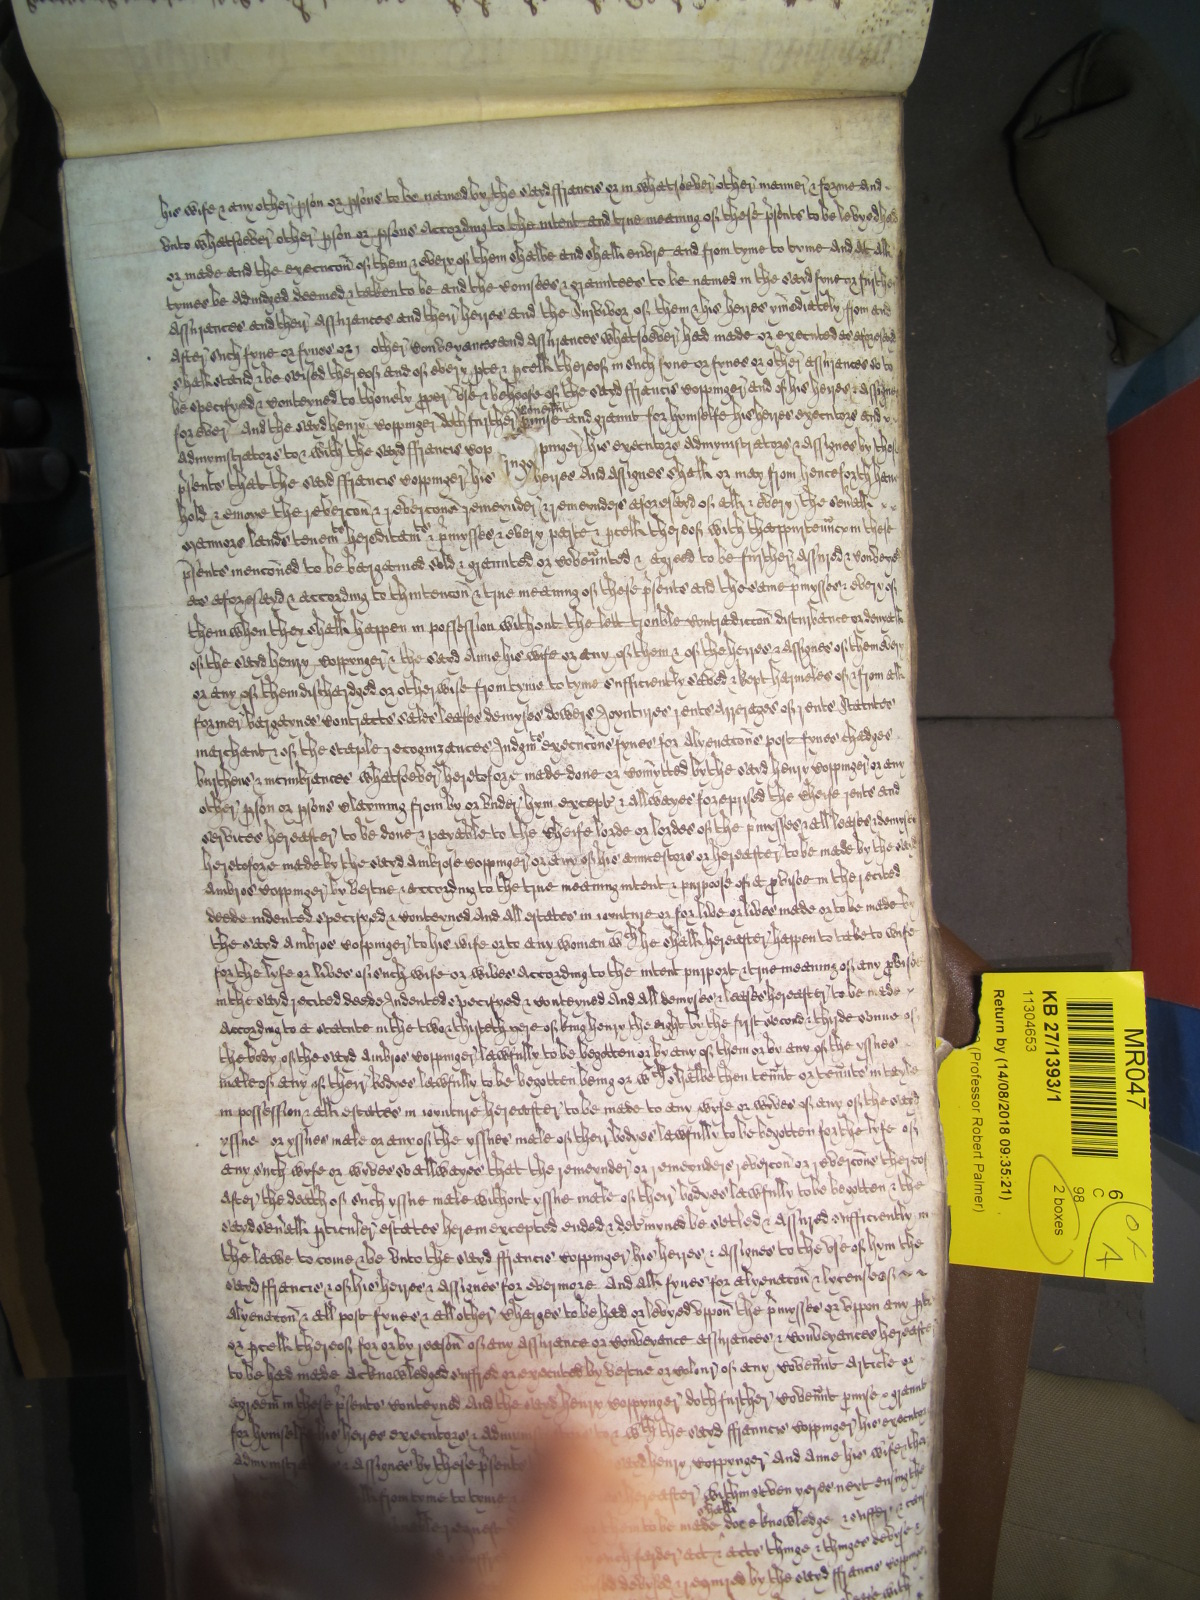 his wife & any other pson or psons to be named by the sayd ffrancis or in whatsoever other manner & forme and
vnto whatsoever other pson or psons according to the intent and true meaning of these psents to be levyed had
or made and the execucon of them & every of them shalbe and shall enure and from tyme to tyme and at all
tymes be adiudged deemed & taken to be and the conisees & grauntees to be named in the sayd fyne or further
assurances and their assurances and their heyres and the Survivor of them & his heyres ymediately from and
after such fyne or fynes or other conveyances and assurances whatsoever had made or executed as aforesaid
shall stand & be seised thereof and of every pte & pcell thereof in such fyne or fynes or other assurances so to
be specifyed & conteyned to thonely pper vse & behoofe of the sayd ffrancis Coppinger and of his heyres & assignes
for ever And the sayd henry Coppinger doth further covenant pmise and graunt for hymselfe his heyres executors and
admynistrators to & with the sayd ffrancis Cop pinger his executors admynistrators & assignes by these
psents that the sayd ffrancis Coppinger his heyres and assignes shall or may from henceforth have
hold & enioye the revercon & revercons remeynder & remeynders aforesayd of all & every the severall
mannors lands tenemts hereditamts & pmysses & every parte & pcell thereof with thappurtenncs in these
psents menconed to be bargained sold & graunted or covenunted & agreed to be further assured & conveyed
as aforesayd & according to thintencon & true meaning of these psents and the same pmysses & every of
them when they shall happen in possession without the lett trouble contradiccon disturbance or demall
of the sayd henry Coppynger & the sayd Anne his wife or any of them & of the heyres & assignes of them every
or any of them dischardged or otherwise from tyme to tyme sufficiently saved & kept harmeles of & from all
former bargaynes contracts sales leases demyses dowers Joyntures rents arrerages of rents Statutes
marchant & of the staple recognizances Judgmts execucons fynes for alyenacons post fynes chardges
burthens & incumbrances whatsoever heretofore made done or comytted by the sayd henry Coppinger or any
other pson or psons clayming from by or vnder hym except & allwayes foreprised the cheife rents and
services hereafter to be done & payable to the cheife lorde or lordes of the pmysses & all leases & demyses
heretofore made by the sayd Ambrose Coppinger or any of his auncestors or hereafter to be made by the sayd
Ambros Coppinger by vertue & according to the true meaning intent & purpose of a pviso in the recited
deede indented specifyed & conteyned And all estates in ioynture or for life or lives made or to be made by
the sayd Ambros Coppinger to his wife or to any woman wch he shall hereafter happen to take to wife
for the lyfe or lives of such wife or wives according to the intent purport & true meaning of any pviso
in the sayd recited deede Indented specifyed & conteyned And all demyses & leases hereafter to be made
according to a statute in the two & thirteth yere of king henry the eight by the first second & thirde sonne of
the body of the sayd Ambros Coppinger lawfully to be begotten or by any of them or by any of the yssues
male of any of their bodyes lawfully to be begotten being or wch shalbe then tennt or tennts in tayle
in possession & all estates in ioynture hereafter to be made to any wyfe or wyves of any of the sayd
yssue or yssues male or any of the yssues male of their bodyes lawfully to be begotten for the lyfe of
any such wyfe or wyves so allwayes that the remeynder or remeynders revercon or revercons thereof
after the death of such yssue male without yssue male of their bodyes lawfully to be begotten & the
sayd severall pticuler estates herein excepted ended & detmyned be setled & assured sufficiently in
the lawe to come & be vnto the sayd ffrancis Coppinger his heyres & assignes to the vse of hym the
sayd ffrancis & of his heyres & assignes for evermore And all fynes for alyenacon & lycenses of
alyenacon & all post fynes & all other charges to be had or levyed vppon the pmysses or vppon any pte
or pcell thereof for or by reason of any assurance or conveyance assurances & conveyances hereafter
to be had made acknowledged suffred or executed by vertue or colour of any covennt article or
agreemt in these psents conteyned And the sayd henry Coppynger doth further covennt pmise & graunt
for hymselfe his heyres executors & admynis to & wth the sayd ffrancis Coppinger his executors
admynistra & assignes by these psents henry Coppynger and Anne his wife
from tyme to tyme hereafter within seven yeres next ensuing the
shall
request to be made doe knowledge & suffer
act & acts thinge & thinges devise
devised & required by the sayd ffrancis
MR047
KB 27/1393/1
11304653
Return by (14/08/2018 09:35:21)
(Professor Robert Palmer)
6
C
98
2 boxes
4 of